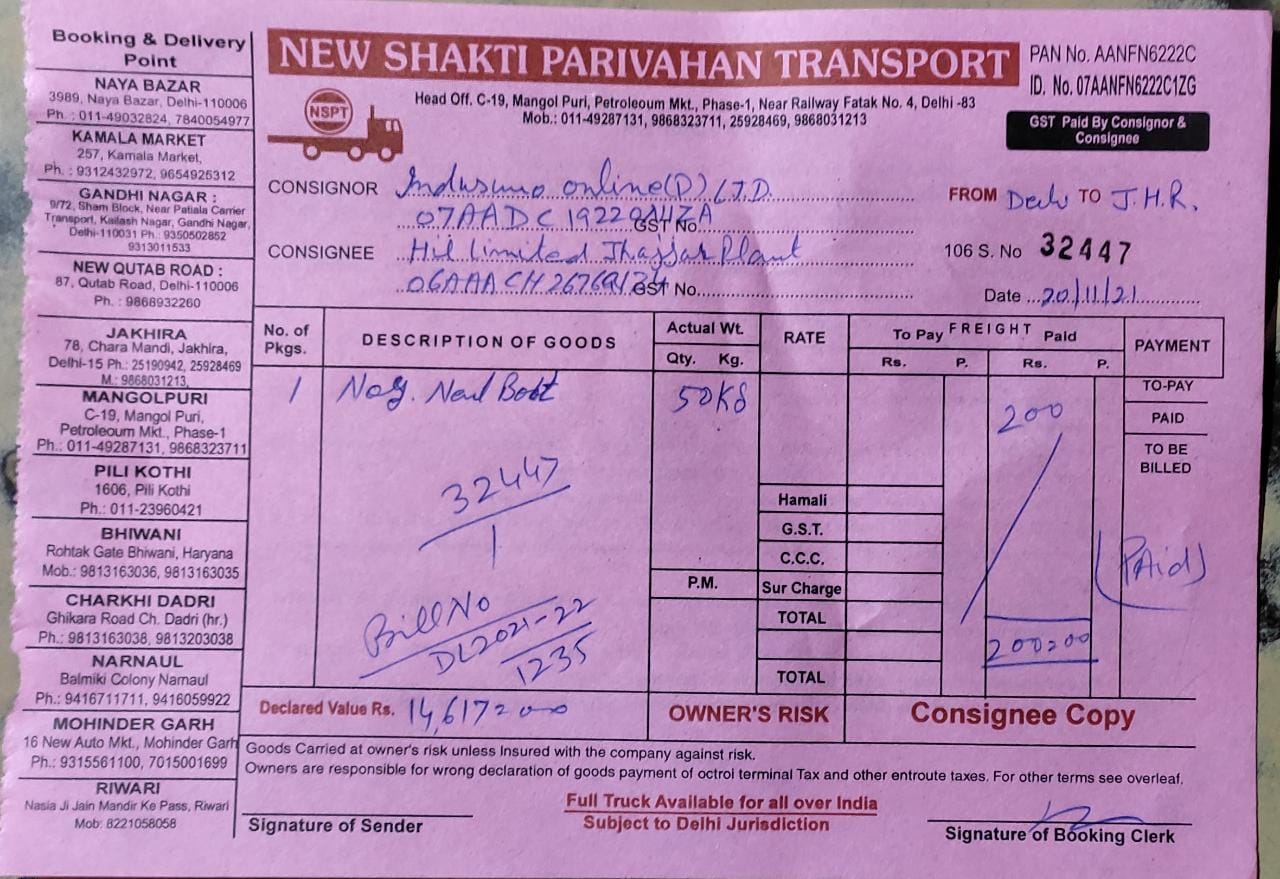 Booking & Delivery
Point
NAYA BAZAR
3989, Naya Bazar, Delhi-110006
Ph. : 011-49032824, 7840054977
KAMALA MARKET
257, Kamala Market,
Ph. : 9312432972, 9654925312
GANDHI NAGAR :
9/72, Sham Block, Near Patiala Carrier
Transport, Kailash Nagar, Gandhi Nagar,
Delhi-110031 Ph.: 9350502852
9313011533
NEW QUTAB ROAD :
87, Qutab Road, Delhi-110006
Ph. : 9868932260
JAKHIRA
78, Chara Mandi, Jakhira,
Delhi-15 Ph.: 25190942, 25928469
M.: 9868031213,
MANGOLPURI
C-19, Mangol Puri,
Petroleoum Mkt., Phase-1
Ph.: 011-49287131, 9868323711
PILI KOTHI
1606, Pili Kothi
Ph.: 011-23960421
BHIWANI
Rohtak Gate Bhiwani, Haryana
Mob.: 9813163036, 9813163035
CHARKHI DADRI
Ghikara Road Ch. Dadri (hr.)
Ph.: 9813163038, 9813203038
NARNAUL
Balmiki Colony Narnaul
Ph.: 9416711711, 9416059922
MOHINDER GARH
16 New Auto Mkt., Mohinder Garh
Ph.: 9315561100, 7015001699
RIWARI
Nasia Ji Jain Mandir Ke Pass, Riwari
Mob: 8221058058
NEW SHAKTI PARIVAHAN TRANSPORT
PAN No. AANFN6222C
ID. No. 07AANFN6222C1ZG
NSPT
Head Off. C-19, Mangol Puri, Petroleoum Mkt., Phase-1, Near Railway Fatak No. 4, Delhi -83
Mob.: 011-49287131, 9868323711, 25928469, 9868031213
GST Paid By Consignor &
Consignee
CONSIGNOR online(P) LTD.
GST No.
FROM TO J.H.R.
CONSIGNEE Hil Limited Jhajjar Plant
GST No.
106 S. No 32447
Date 20/11/21
No. of Pkgs. DESCRIPTION OF GOODS Actual Wt. RATE To Pay FREIGHT Paid PAYMENT
Qty. Kg. Rs. P. Rs. P.
1 50KG 200 TO-PAY
PAID
TO BE
BILLED
32447
1
Hamali
G.S.T.
C.C.C.
P.M. Sur Charge
(PAid)
TOTAL
Bill No
DL2021-22
1235
200=00
TOTAL
Declared Value Rs. 14,617=00 OWNER'S RISK Consignee Copy
Goods Carried at owner's risk unless Insured with the company against risk.
Owners are responsible for wrong declaration of goods payment of octroi terminal Tax and other entroute taxes. For other terms see overleaf.
Full Truck Available for all over India
Subject to Delhi Jurisdiction
Signature of Sender
Signature of Booking Clerk